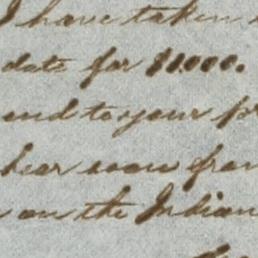 I have taken
date for $1.000.
and to your pr
hear soon from
on the Indian